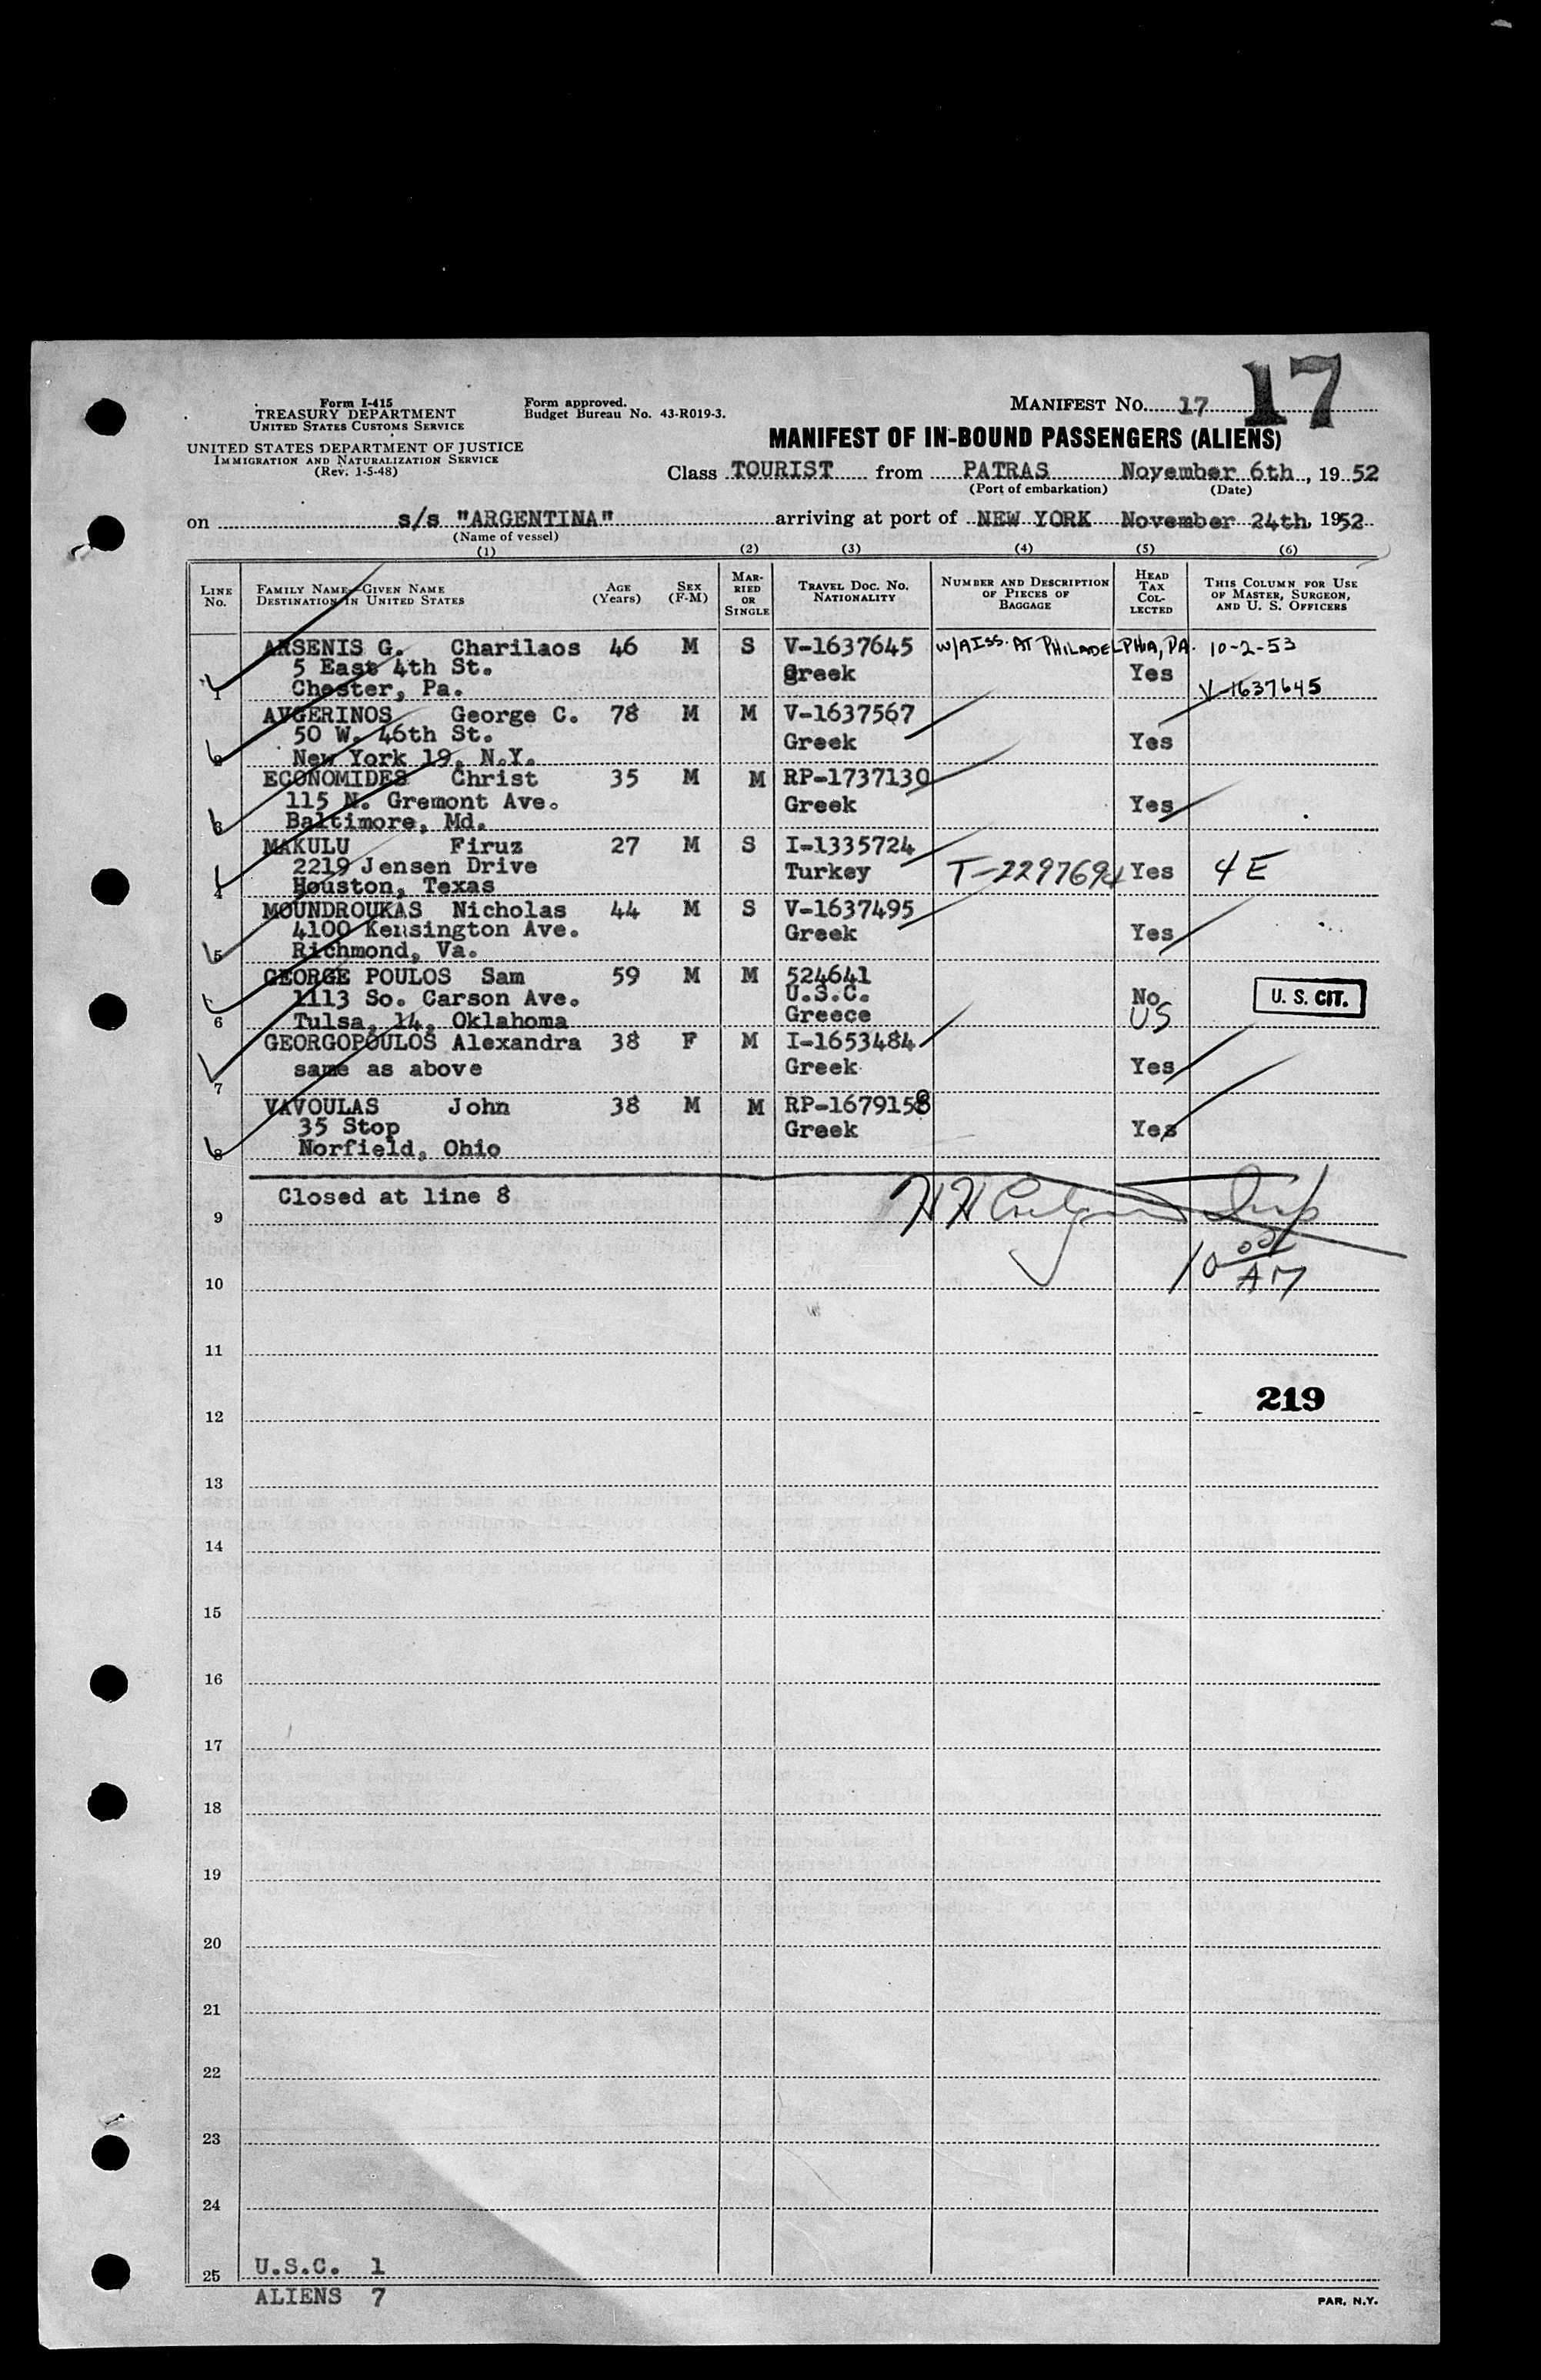 17
Form I-415
TREASURY DEPARTMENT
UNITED STATES CUSTOMS SERVICE
Form approved.
Budget Bureau No. 43-R019-3.
MANIFEST No. 17
UNITED STATES DEPARTMENT OF JUSTICE
IMMIGRATION AND NATURALIZATION SERVICE
(Rev. 1-5-48)
MANIFEST OF IN-BOUND PASSENGERS (ALIENS)
Class TOURIST from PATRAS November 6th, 1952
(Port of embarkation) (Date)
on s/s "ARGENTINA" arriving at port of NEW YORK November 24th, 1952
(Name of vessel)
(1) (2) (3) (4) (5) (6)
LINE No. FAMILY NAME—GIVEN NAME DESTINATION IN UNITED STATES AGE (Years) SEX (F-M) MARRIED OR SINGLE TRAVEL DOC. NO. NATIONALITY NUMBER AND DESCRIPTION OF PIECES OF BAGGAGE HEAD TAX COLLECTED THIS COLUMN FOR USE OF MASTER, SURGEON, AND U. S. OFFICERS
ARSENIS G. Charilaos 46 M S V-1637645 W/A ISS. AT PHILADELPHIA, PA. 10-2-53
5 East 4th St. Greek Yes
1 Chester, Pa. V-1637645
AVGERINOS George C. 78 M M V-1637567
50 W. 46th St. Greek Yes
2 New York 19, N.Y.
ECONOMIDES Christ 35 M M RP-1737130
115 N. Gremont Ave. Greek Yes
3 Baltimore, Md.
MAKULU Firuz 27 M S I-1335724
2219 Jensen Drive Turkey T-2297694 Yes 4E
4 Houston, Texas
MOUNDROUKAS Nicholas 44 M S V-1637495
4100 Kensington Ave. Greek Yes
5 Richmond, Va.
GEORGE POULOS Sam 59 M M 524641
1113 So. Carson Ave. U.S.C. No U. S. CIT.
6 Tulsa, 14, Oklahoma Greece US
GEORGOPOULOS Alexandra 38 F M I-1653484
same as above Greek Yes
7
VAVOULAS John 38 M M RP-1679158
35 Stop Greek Yes
8 Norfield, Ohio
Closed at line 8
9
10 00 AM
10
11
219
12
13
14
15
16
17
18
19
20
21
22
23
24
25 U.S.C. 1
ALIENS 7
PAR, N.Y.